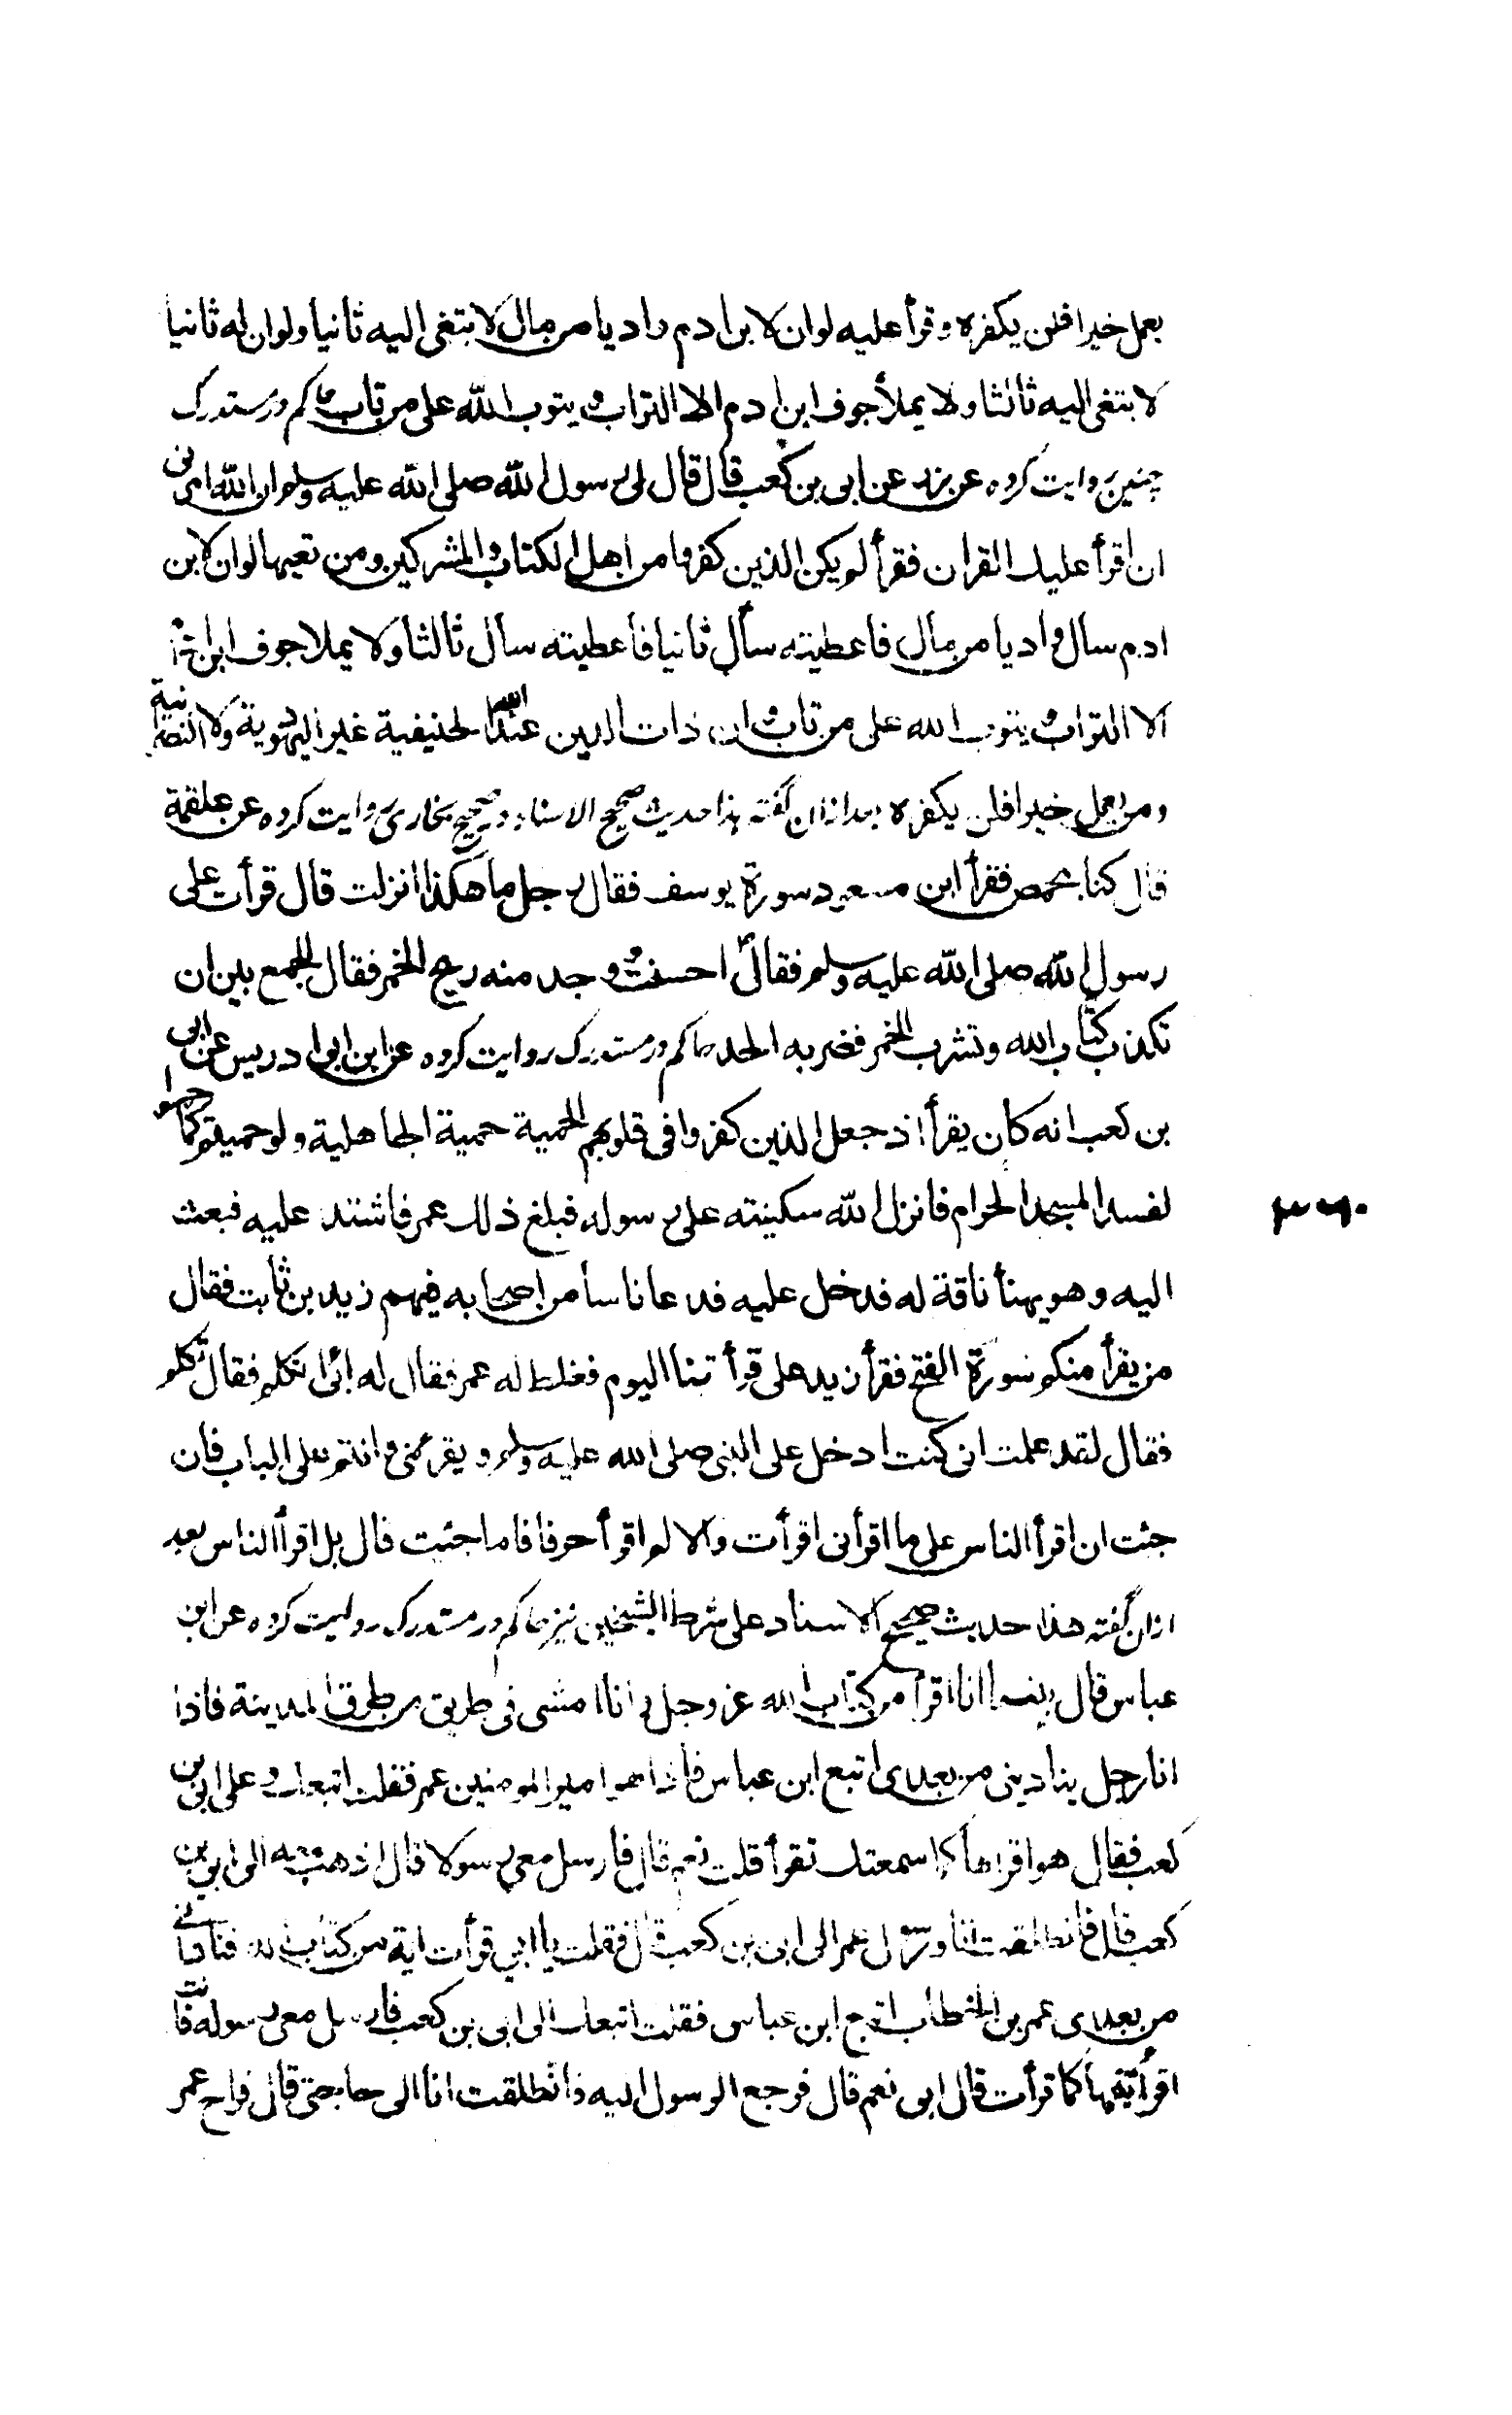 يعمل خيرا فلن يكفره وقرأ عليه لو ان لابن ادم واديا من مال لابتغى اليه ثانيا ولو ان له ثانيا
لابتغى اليه ثالثا ولا يملأ جوف ابن ادم الا التراب و يتوب الله على من تاب حاكم در مستدرك
چنين روايت كرده عن زر عن ابى بن كعب قال قال لى رسول الله صلى الله عليه وسلم ان الله امرنى
ان اقرأ عليك القران فقرأ لم يكن الذين كفروا من اهل الكتاب والمشركين ومن نعيمها لو ان لابن
ادم سال واديا من مال فاعطيته سأل ثانيا فاعطيته سأل ثالثا ولا يملا جوف ابن
الا التراب و يتوب الله على من تاب وان ذات الدين عند الله الحنيفية غير اليهودية ولا النصرانية
ومن يعمل خيرا فلن يكفره بعد ازان گفته هذا حديث صحيح الاسناد در صحيح بخارى روايت كرده عن علقمة
قال كنا بحمص فقرأ ابن مسعود سورة يوسف فقال رجل ما هكذا انزلت قال قرأت على
رسول الله صلى الله عليه وسلم فقال احسنت و وجد منه ريح الخمر فقال اتجمع بين ان
تكذب كتاب الله وتشرب الخمر فضربه الحد حاكم در مستدرك روايت كرده عن ابن ابى ادريس عن ابى
بن كعب انه كان يقرأ اذ جعل الذين كفروا فى قلوبهم الحمية حمية الجاهلية ولو حميتم كما حموا
لفسد المسجد الحرام فانزل الله سكينته على رسوله فبلغ ذلك عمر فاشتد عليه فبعث
اليه وهو يهنأ ناقة له فدخل عليه فدعا ناسا من اصحابه فيهم زيد بن ثابت فقال
من يقرأ منكم سورة الفتح فقرأ زيد على قرأتنا اليوم فغلظ له عمر فقال له ابى اتكلم فقال تكلم
فقال لقد علمت انى كنت ادخل على النبى صلى الله عليه وسلم ويقرئنى وانتم على الباب فان
جئت ان اقرأ الناس على ما اقرأنى اقرأت والا لم اقرأ حرفا فاما جئت قال بل اقرأ الناس بعد
ازان گفته هذا حديث صحيح الاسناد على شرط الشيخين نيز حاكم در مستدرك روايت كرده عن ابن
عباس قال بينما انا اقرأ من كتاب الله عز وجل وانا امشى فى طريق من طرق المدينة فاذا
انا رجل ينادينى من بعدى اتبع ابن عباس فاذا هو امير المومنين عمر فقلت اتبعك على ابى بن
كعب فقال هو اقراها كما سمعتك تقرأ قلت نعم قال فارسل معى رسولا قال اذهب معه الى ابى بن
كعب قال فانطلقت انا ورسول عمر الى ابى بن كعب قال فقلت يا ابى قرأت اية من كتاب الله فنادانى
من بعدى عمر بن الخطاب اتبع ابن عباس فقلت اتبعك الى ابى بن كعب فارسل معى رسوله فانت
اقرأتنيها كما قرأت قال ابى نعم قال فرجع الرسول اليه فانطلقت انا الى حاجتى قال فراح عمر